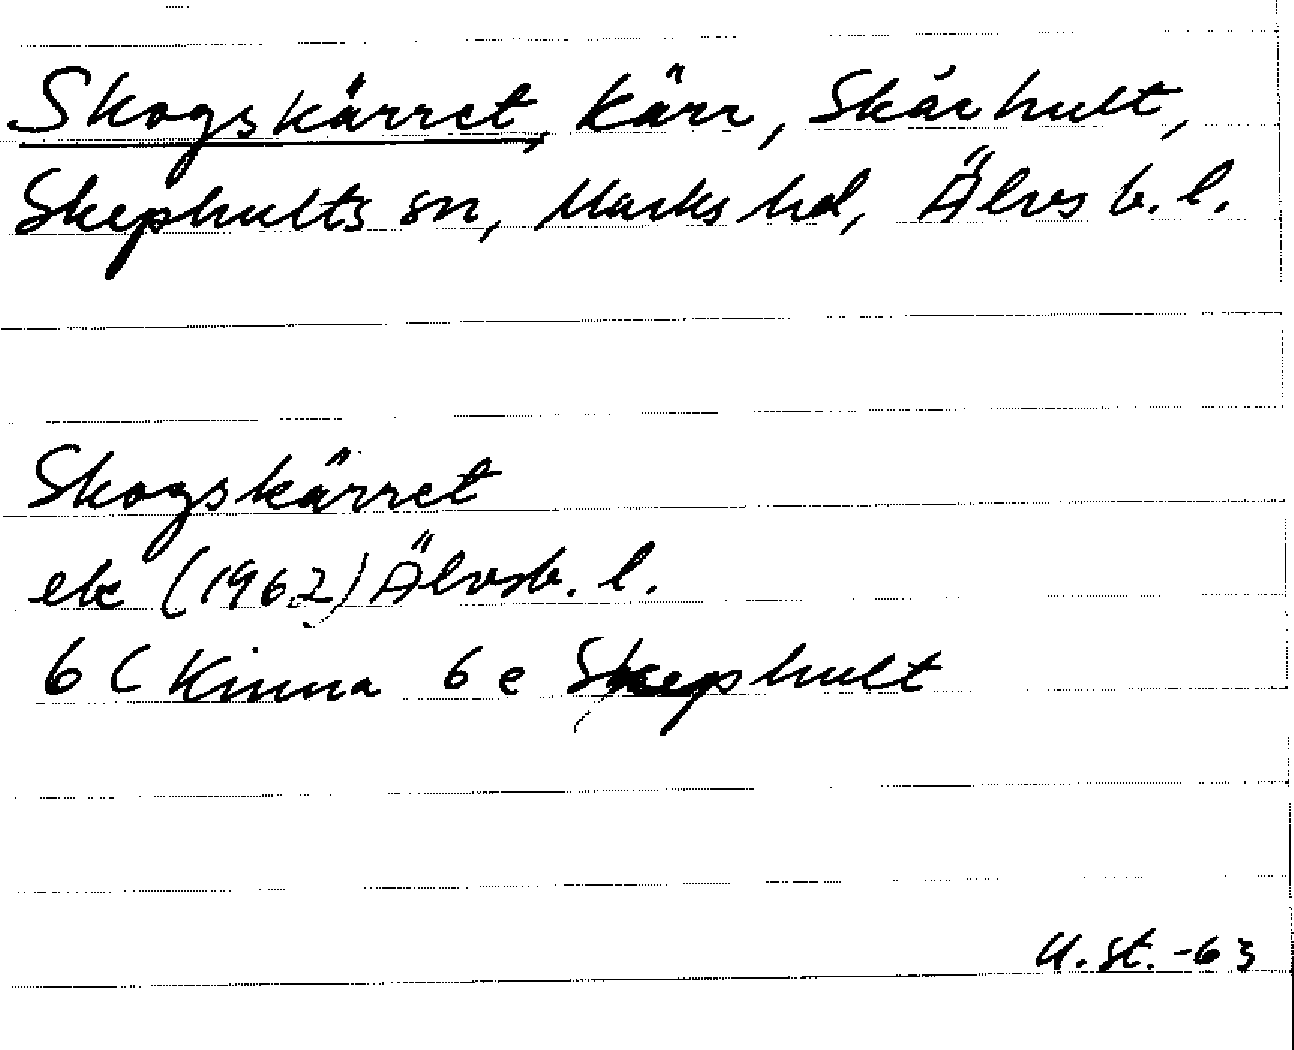 Skogskärret, kärr, Skårhult,
Skephults sn, Marks hd, Älvsb. l.
Skogskärret
ek (1962) Älvsb. l.
6 C Kinna 6 e Skephult
U. St. -63